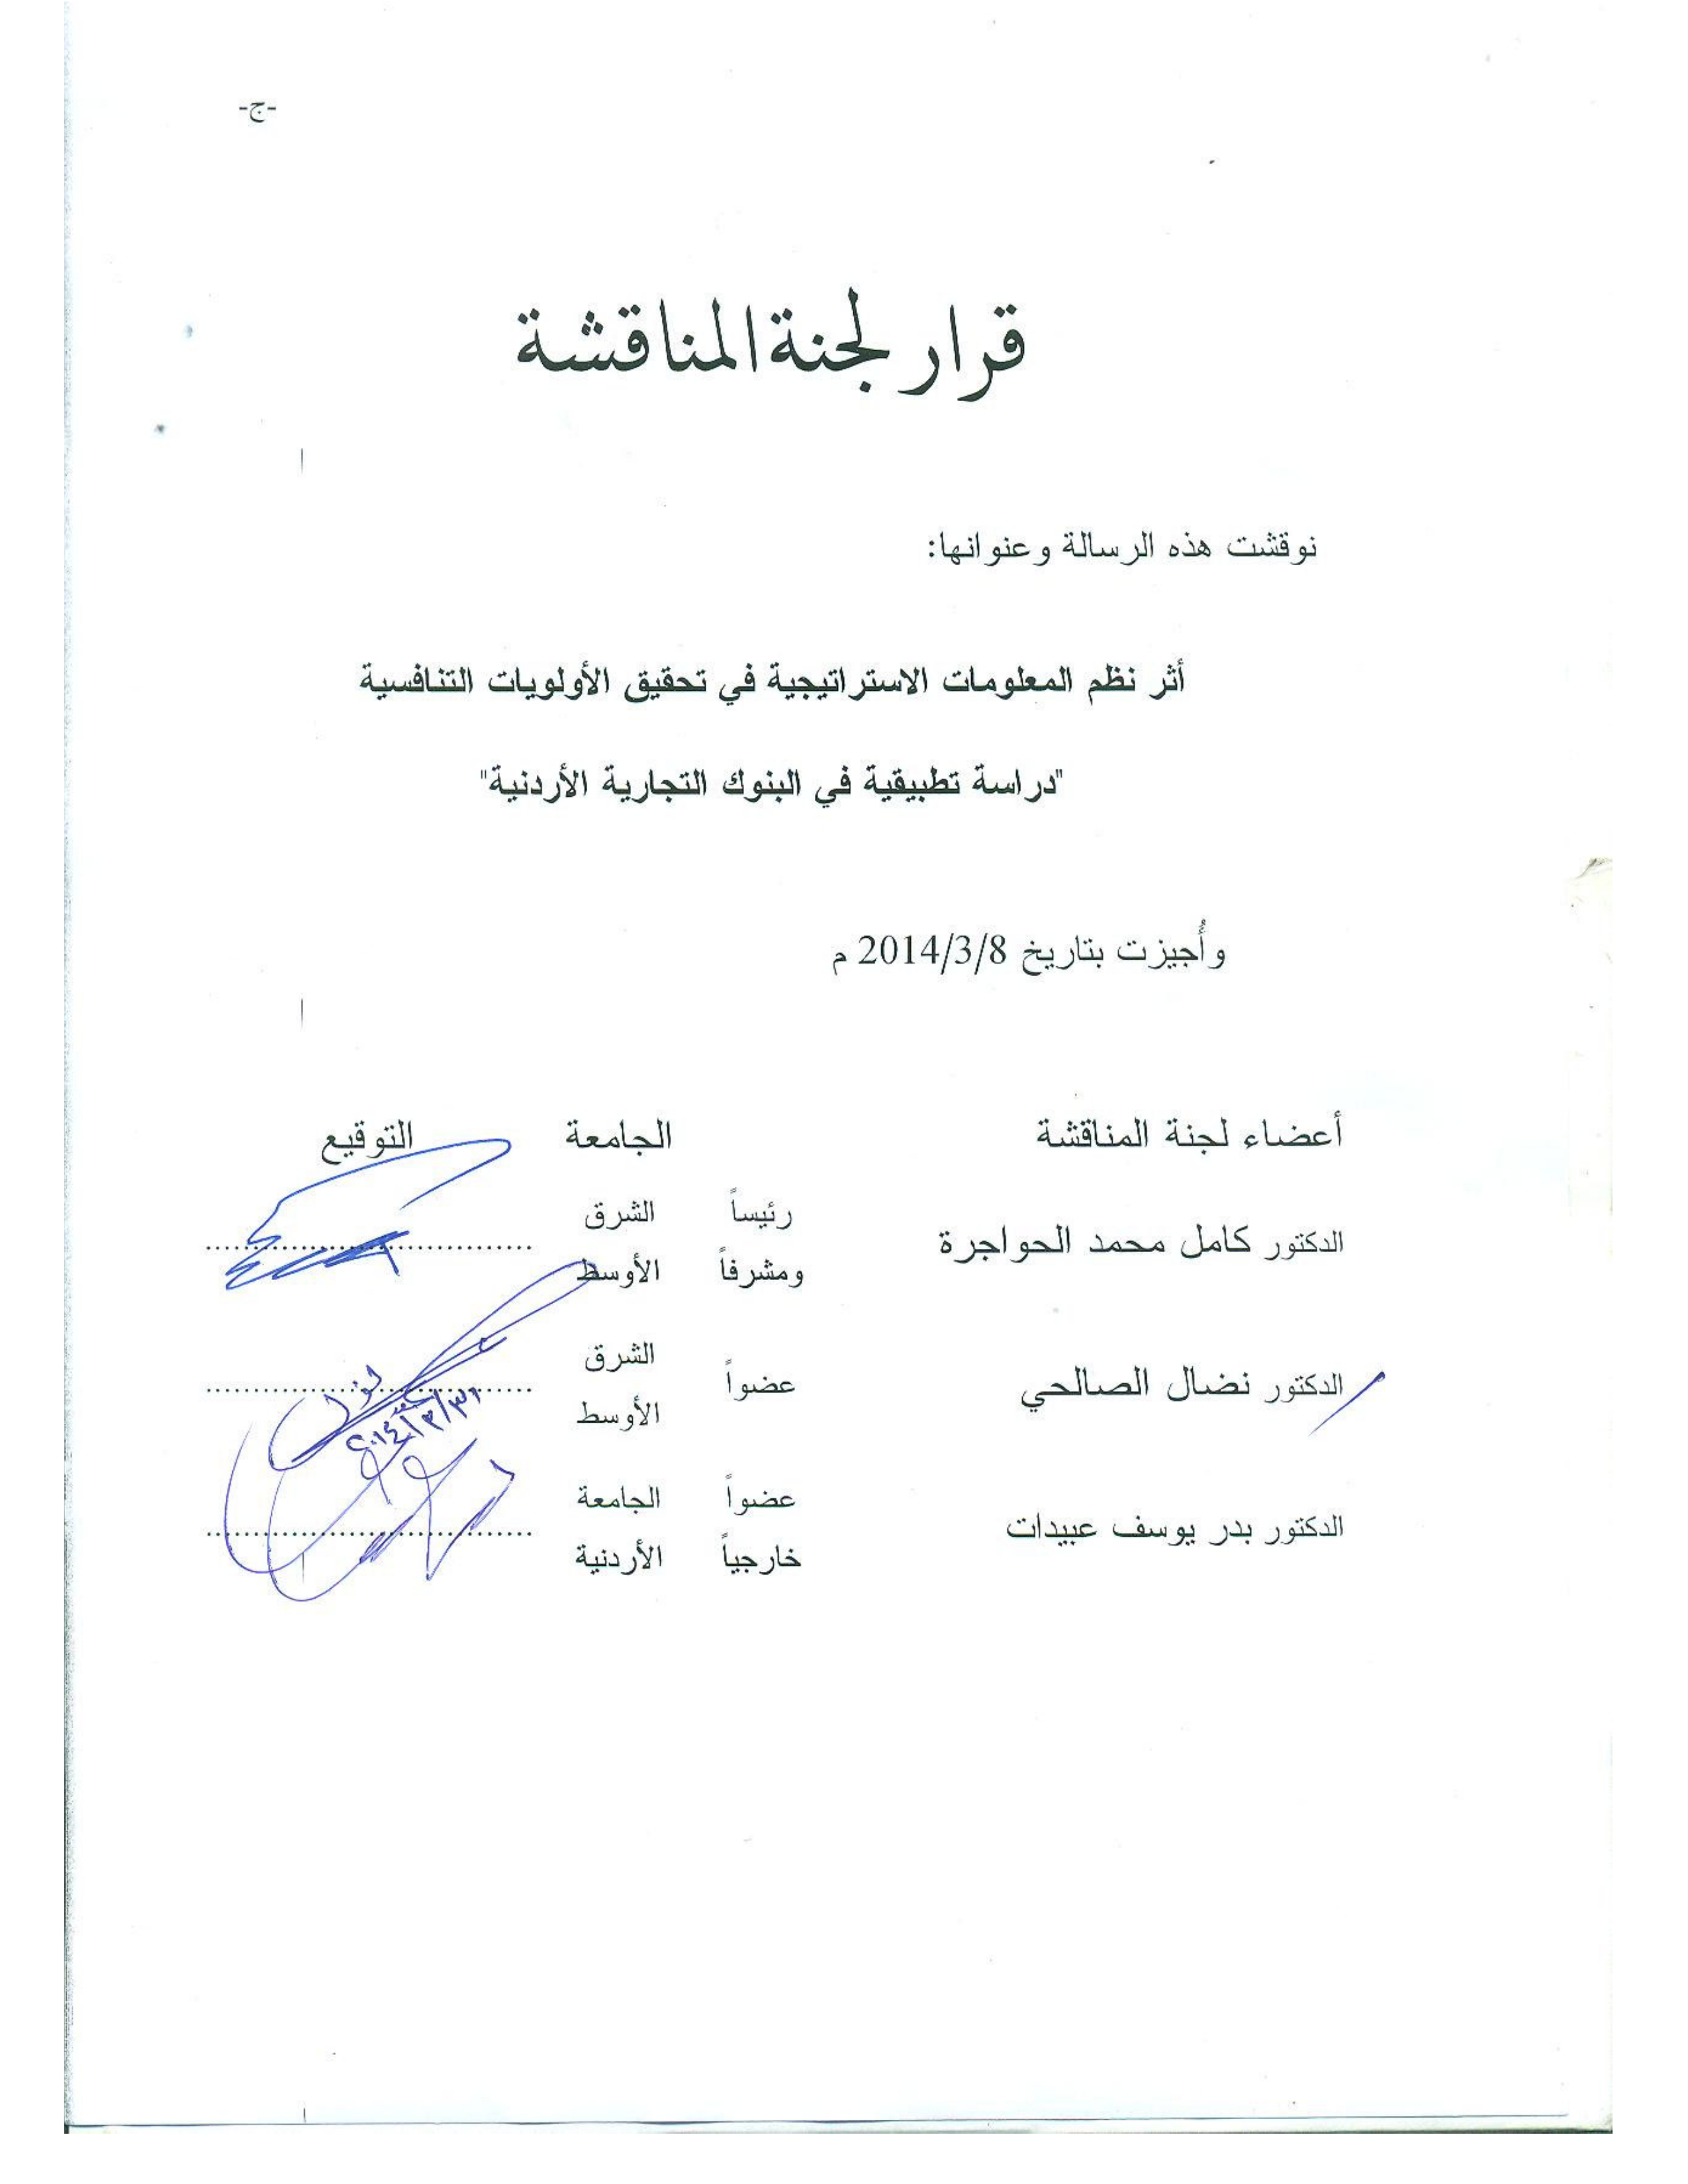 -ج-
قرار لجنة المناقشة
نوقشت هذه الرسالة وعنوانها:
أثر نظم المعلومات الاستراتيجية في تحقيق الأولويات التنافسية
"دراسة تطبيقية في البنوك التجارية الأردنية"
وأُجيزت بتاريخ 2014/3/8 م
أعضاء لجنة المناقشة الجامعة التوقيع
الدكتور كامل محمد الحواجرة رئيساً ومشرفاً الشرق الأوسط
الدكتور نضال الصالحي عضواً الشرق الأوسط
الدكتور بدر يوسف عبيدات عضواً خارجياً الجامعة الأردنية